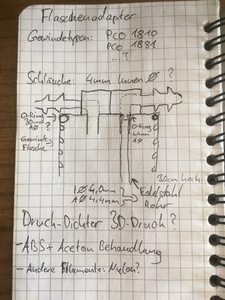 Flaschenadapter
Gewindetypen: PCO 1810
PCO 1881
...?
Schläuche: 4mm Innen Ø ?
O-Ring
30mm
AØ
Gewinde
Flasche
O-Ring
AØ
30cm hoch
IØ 4,0mm
AØ 4,4mm
Edelstahl
Rohr
Druck-Dichter 3D-Druck?
- ABS + Aceton Behandlung
- Andere Filamente: Nylon?